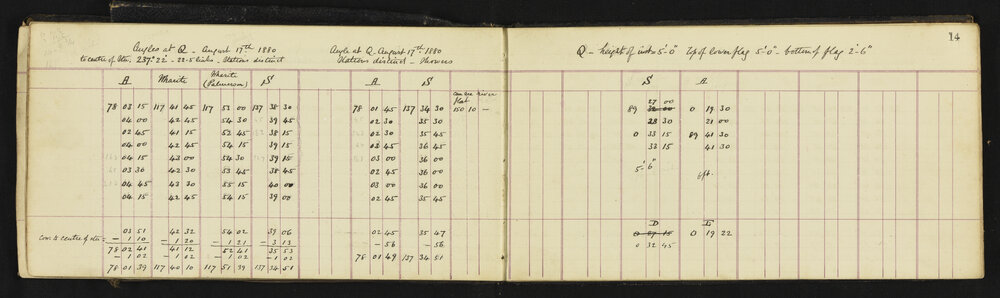 14
Angles at Q - August 17th 1880
to centre of Stn. 237° 22' - 22.5 links - Stations distinct
A Wharite Wharite (Palmerson) S
78 03 15 117 41 45 117 53 00 137 38 30
04 00 42 45 54 30 39 45
02 45 41 15 52 45 38 15
04 00 42 45 54 15 39 15
04 15 43 00 54 30 39 15
03 30 42 30 53 45 38 45
04 45 43 30 55 15 40 00
04 15 42 45 54 15 39 00
03 51 42 32 54 02 39 06
Corr. to centre of stn = - 1 10 - 1 20 - 1 21 - 3 13
78 02 41 41 12 52 41 35 53
- 1 02 - 1 02 - 1 02 - 1 02
78 01 39 117 40 10 117 51 39 137 34 51
Angle at Q August 17th 1880
Stations distinct - Showers
A S
can see river flat
78 01 45 137 34 30 150 10 -
02 30 35 30
02 30 35 45
02 45 36 00
03 00 36 00
02 45 36 00
03 00 36 00
02 45 35 45
02 45 35 47
- 56 - 56
78 01 49 137 34 51
Q - height of inst 5'-0" Top of lower flag 5'-0" - bottom of flag 2'-6"
S A
27 00
89 32 00 0 19 30
28 30 21 00
0 33 15 89 41 30
33 15 41 30
5'-6" 6ft.
D E
0 27 15 0 19 22
0 32 45